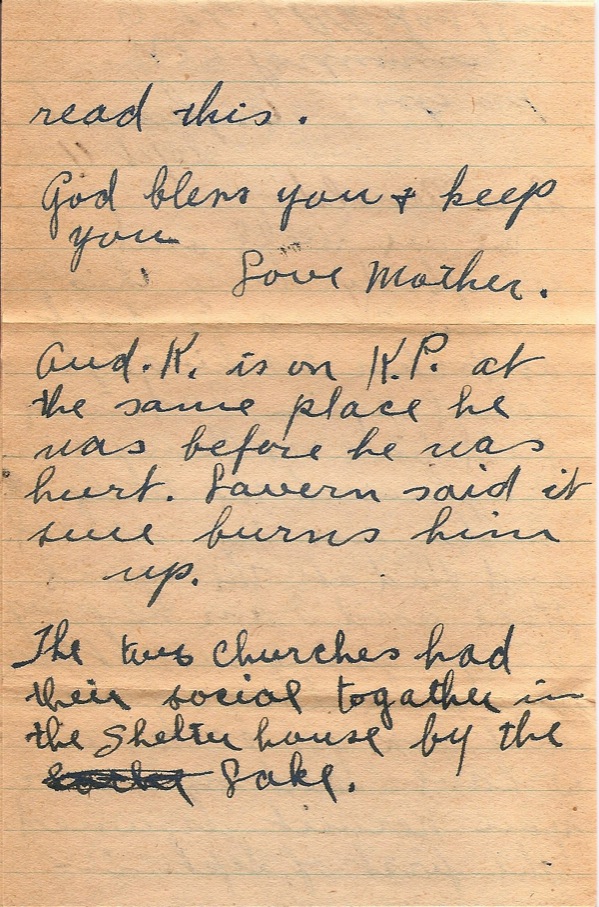 read this.
God bless you & keep
you
Love Mother.
Aud. K. is on K.P. at
the same place he
was before he was
hurt. Lavern said it
sure burns him
up.
The two churches had
their social togather in
the Shelter house by the
Lake.